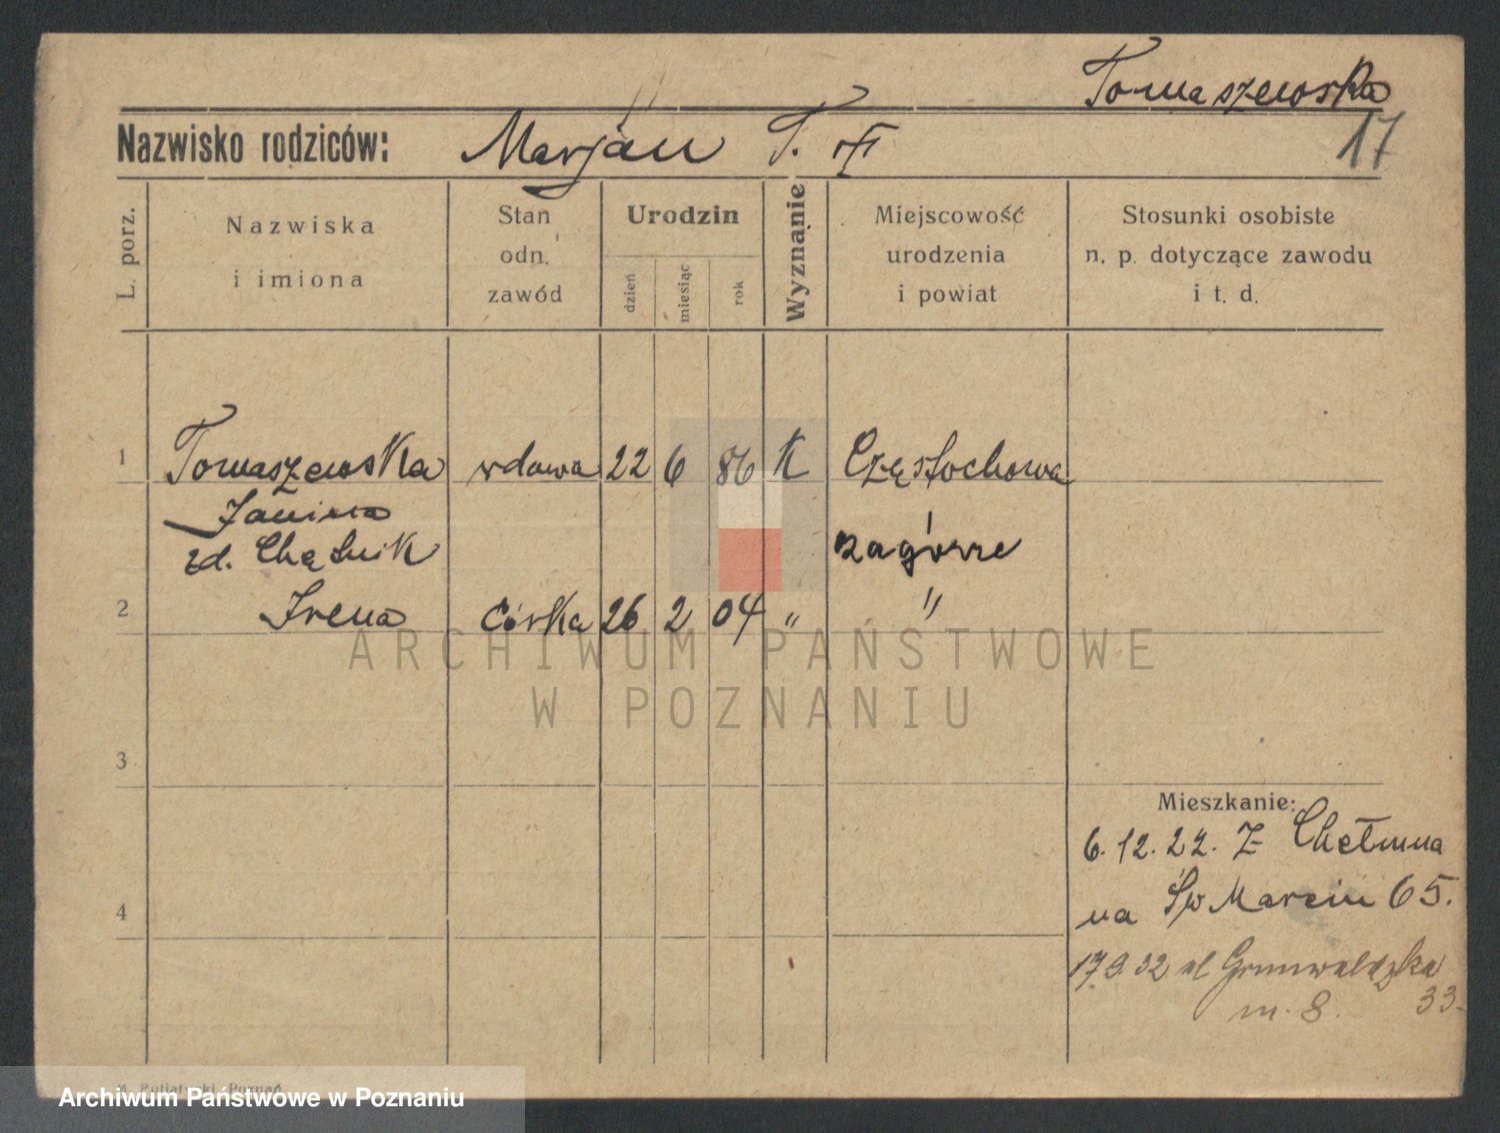 Tomaszewska
Nazwisko rodziców: Marjan T. 17
L. porz.
Nazwiska i imiona
Stan odn. zawód
Urodzin
dzień miesiąc rok
Wyznanie
Miejscowość urodzenia i powiat
Stosunki osobiste n. p. dotyczące zawodu i t. d.
1 Tomaszewska wdowa 22 6 86 K Częstochowa
Janina
zd. Chęśnik zagórze
2 Irena córka 26 2 04 " "
ARCHIWUM PAŃSTWOWE
W POZNANIU
3
Mieszkanie:
6. 12. 22. Z Chełmna
4
na Św Marcin 65.
17.9.32 ul Grunwaldzka
m. 8. 33.
Poznań
Archiwum Państwowe w Poznaniu